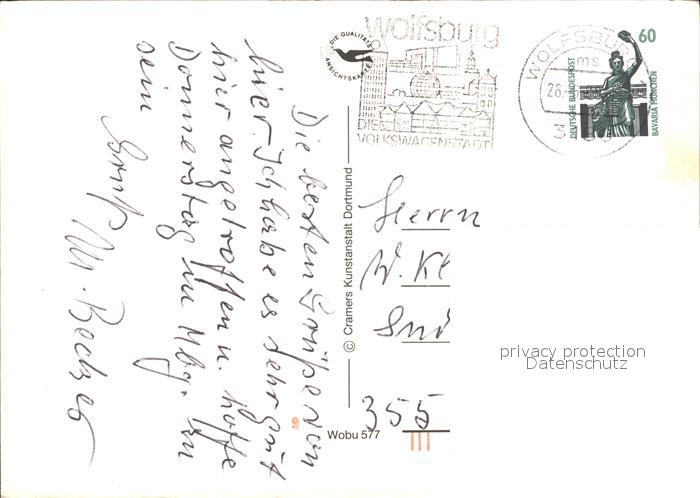 Die besten Grüße von
hier. Ich habe es sehr gut
hier angetroffen u. hoffe
Donnerstag in Mbg. zu
sein
Gruß
M.
DIE QUALITÄTS
ANSICHTSKARTE
wolfsburg
DIE
VOLKSWAGENSTADT
WOLFSBURG
ms
28.
3
60
DEUTSCHE BUNDESPOST
BAVARIA MÜNCHEN
© Cramers Kunstanstalt Dortmund
Herrn
W. Kl
355
Wobu 577
privacy protection
Datenschutz